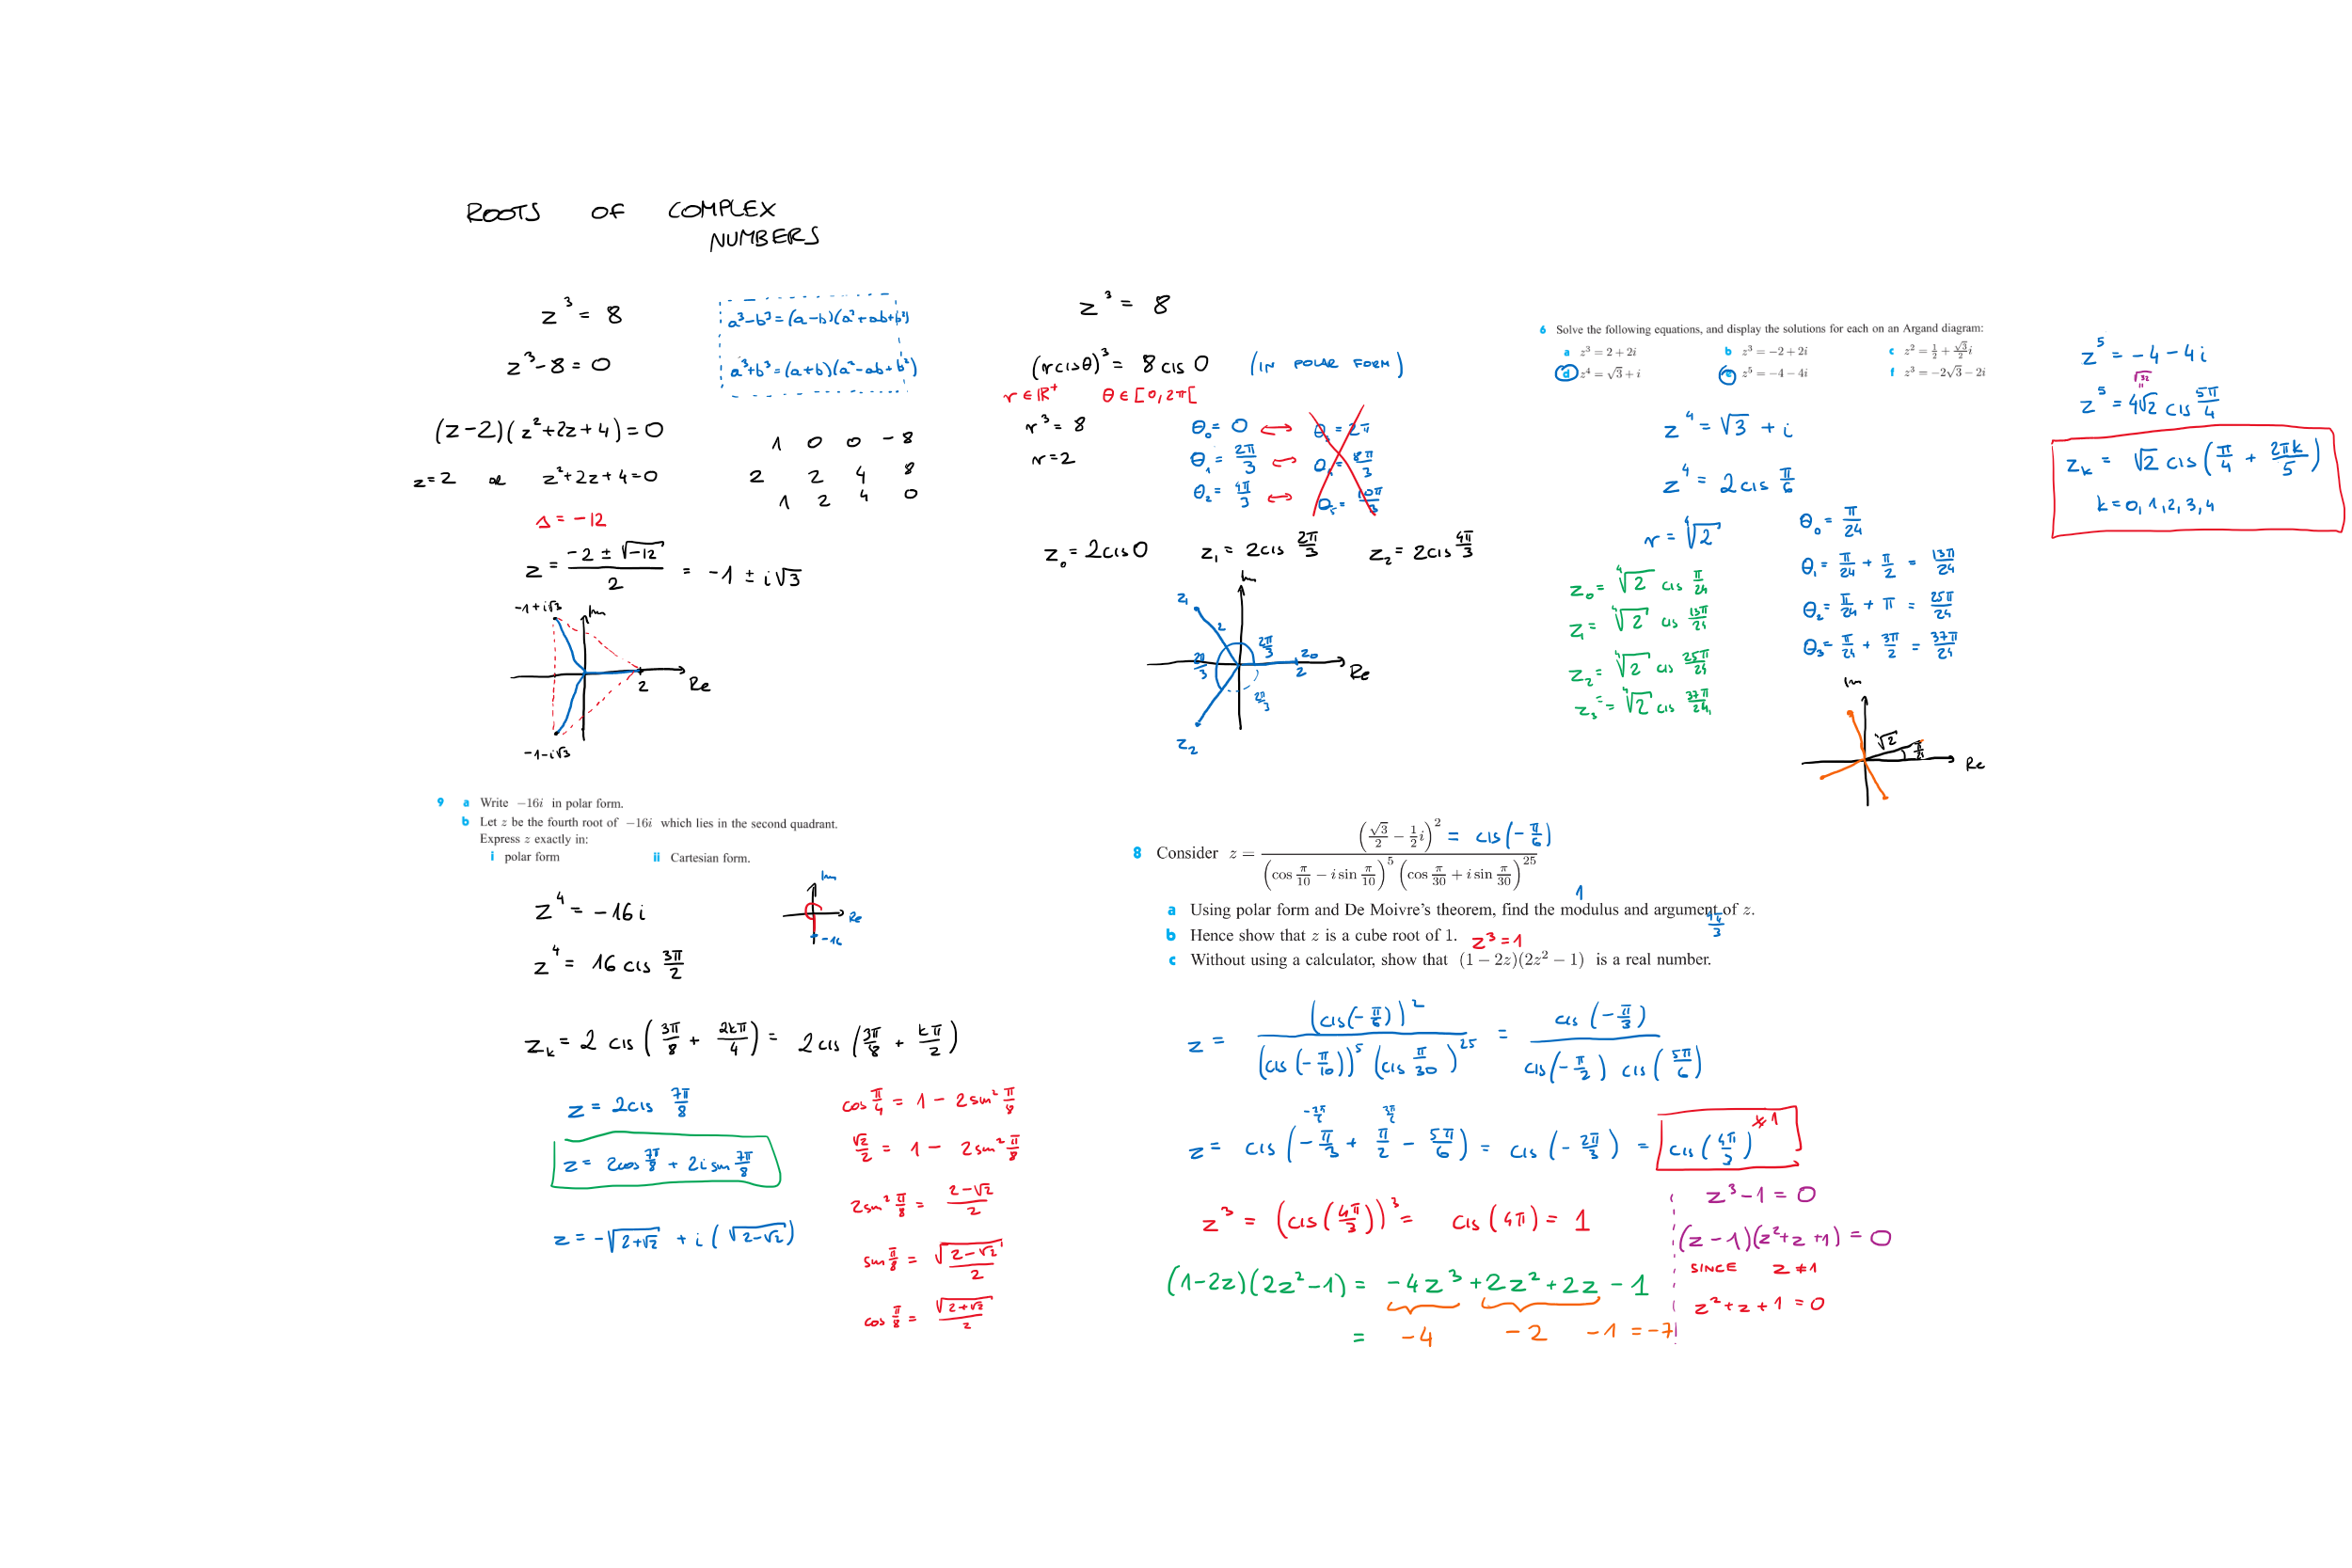 ROOTS OF COMPLEX
NUMBERS
z³ = 8
z³ - 8 = 0
(z-2)(z²+2z+4) = 0
z=2 or z²+2z+4=0
Δ = -12
z = (-2 ± √-12)/2 = -1 ± i√3
a³-b³ = (a-b)(a²+ab+b²)
a³+b³ = (a+b)(a²-ab+b²)
1 0 0 -8
2 2 4 8
1 2 4 0
-1+i√3
Im
2 Re
-1-i√3
z³ = 8
(r cis θ)³ = 8 cis 0 (IN POLAR FORM)
r ∈ ℝ⁺ θ ∈ [0, 2π[
r³ = 8
r = 2
θ₀ = 0 ↔ θ₃ = 2π
θ₁ = 2π/3 ↔ θ₄ = 8π/3
θ₂ = 4π/3 ↔ θ₅ = 10π/3
z₀ = 2 cis 0 z₁ = 2 cis 2π/3 z₂ = 2 cis 4π/3
Im
z₁
2
2π/3
2π/3
z₀
2
Re
2π/3
z₂
6 Solve the following equations, and display the solutions for each on an Argand diagram:
a z³ = 2 + 2i b z³ = -2 + 2i c z² = 1/2 + √3/2 i
d z⁴ = √3 + i e z⁵ = -4 - 4i f z³ = -2√3 - 2i
z⁴ = √3 + i
z⁴ = 2 cis π/6
r = ⁴√2
θ₀ = π/24
θ₁ = π/24 + π/2 = 13π/24
θ₂ = π/24 + π = 25π/24
θ₃ = π/24 + 3π/2 = 37π/24
z₀ = ⁴√2 cis π/24
z₁ = ⁴√2 cis 13π/24
z₂ = ⁴√2 cis 25π/24
z₃ = ⁴√2 cis 37π/24
Im
⁴√2
π/24
Re
z⁵ = -4 - 4i
√32
=
z⁵ = 4√2 cis 5π/4
z_k = √2 cis (π/4 + 2πk/5)
k = 0, 1, 2, 3, 4
9 a Write -16i in polar form.
b Let z be the fourth root of -16i which lies in the second quadrant.
Express z exactly in:
i polar form ii Cartesian form.
Im
Re
-16
z⁴ = -16i
z⁴ = 16 cis 3π/2
z_k = 2 cis (3π/8 + 2kπ/4) = 2 cis (3π/8 + kπ/2)
z = 2 cis 7π/8
z = 2cos 7π/8 + 2i sin 7π/8
z = -√(2+√2) + i(√(2-√2))
cos π/4 = 1 - 2sin² π/8
√2/2 = 1 - 2sin² π/8
2sin² π/8 = (2-√2)/2
sin π/8 = √(2-√2)/2
cos π/8 = √(2+√2)/2
8 Consider z = (√3/2 - 1/2 i)² / ((cos π/10 - i sin π/10)⁵ (cos π/30 + i sin π/30)²⁵)
= cis(-π/6)
1
a Using polar form and De Moivre's theorem, find the modulus and argument of z.
4π/3
b Hence show that z is a cube root of 1. z³ = 1
c Without using a calculator, show that (1 - 2z)(2z² - 1) is a real number.
z = (cis(-π/6))² / ((cis(-π/10))⁵ (cis π/30)²⁵) = cis(-π/3) / (cis(-π/2) cis(5π/6))
z = cis(-π/3 + π/2 - 5π/6) = cis(-2π/3) = cis(4π/3) ≠1
z³ = (cis(4π/3))³ = cis(4π) = 1
(1-2z)(2z²-1) = -4z³ + 2z² + 2z - 1
= -4 -2 -1 = -7
z³ - 1 = 0
(z-1)(z²+z+1) = 0
SINCE z ≠ 1
z² + z + 1 = 0